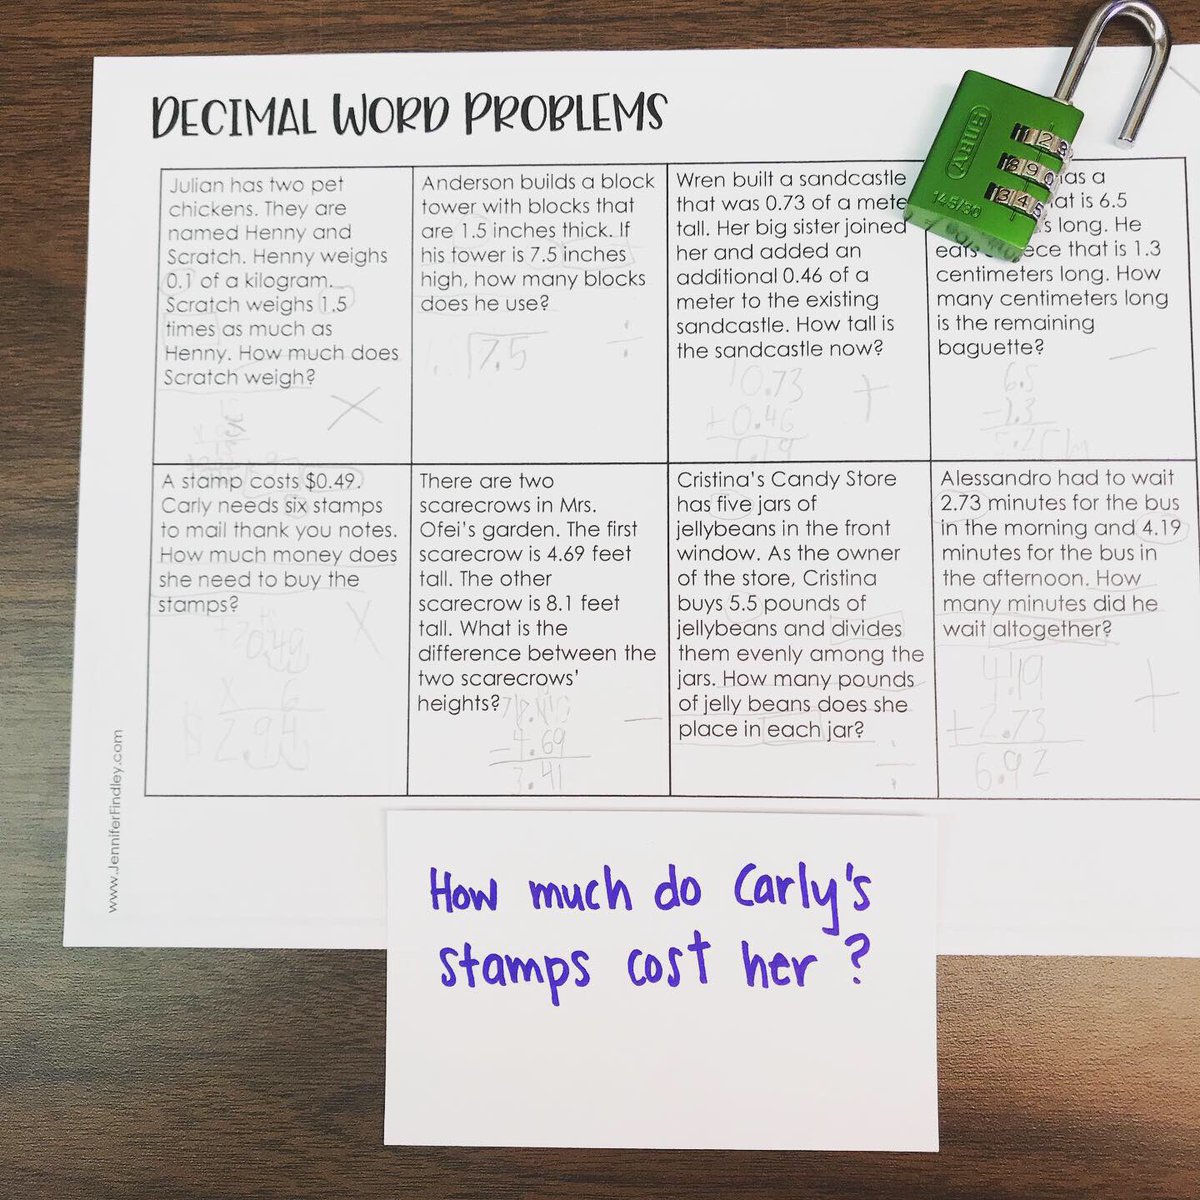 DECIMAL WORD PROBLEMS
Julian has two pet
chickens. They are
named Henny and
Scratch. Henny weighs
0.1 of a kilogram.
Scratch weighs 1.5
times as much as
Henny. How much does
Scratch weigh?
×
Anderson builds a block
tower with blocks that
are 1.5 inches thick. If
his tower is 7.5 inches
high, how many blocks
does he use?
7.5
÷
Wren built a sandcastle
that was 0.73 of a mete
tall. Her big sister joined
her and added an
additional 0.46 of a
meter to the existing
sandcastle. How tall is
the sandcastle now?
0.73
+ 0.46
1.19
+
as a
at is 6.5
s long. He
eats ece that is 1.3
centimeters long. How
many centimeters long
is the remaining
baguette?
6.5
- 1.3
5.2
A stamp costs $0.49.
Carly needs six stamps
to mail thank you notes.
How much money does
she need to buy the
stamps?
0.49
x 6
$ 2.94
There are two
scarecrows in Mrs.
Ofei's garden. The first
scarecrow is 4.69 feet
tall. The other
scarecrow is 8.1 feet
tall. What is the
difference between the
two scarecrows'
heights?
- 4.69
3.41
Cristina's Candy Store
has five jars of
jellybeans in the front
window. As the owner
of the store, Cristina
buys 5.5 pounds of
jellybeans and divides
them evenly among the
jars. How many pounds
of jelly beans does she
place in each jar?
÷
Alessandro had to wait
2.73 minutes for the bus
in the morning and 4.19
minutes for the bus in
the afternoon. How
many minutes did he
wait altogether?
4.19
+ 2.73
6.92
+
www.JenniferFindley.com
ABUS
145/30
1 2 3
8 9 0
3 4 5
How much do Carly's
stamps cost her?